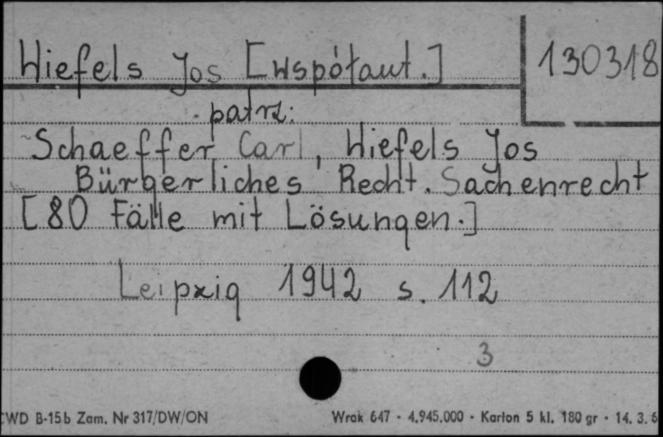 Wiefels Jos [współaut.]
130318
patrz:
Schaeffer Carl, Wiefels Jos
Bürgerliches Recht. Sachenrecht
[80 Fälle mit Lösungen.]
Leipzig 1942 s. 112
3
CWD B-15b Zam. Nr 317/DW/ON
Wrak 647 - 4.945.000 - Karton 5 kl. 180 gr - 14. 3. 6